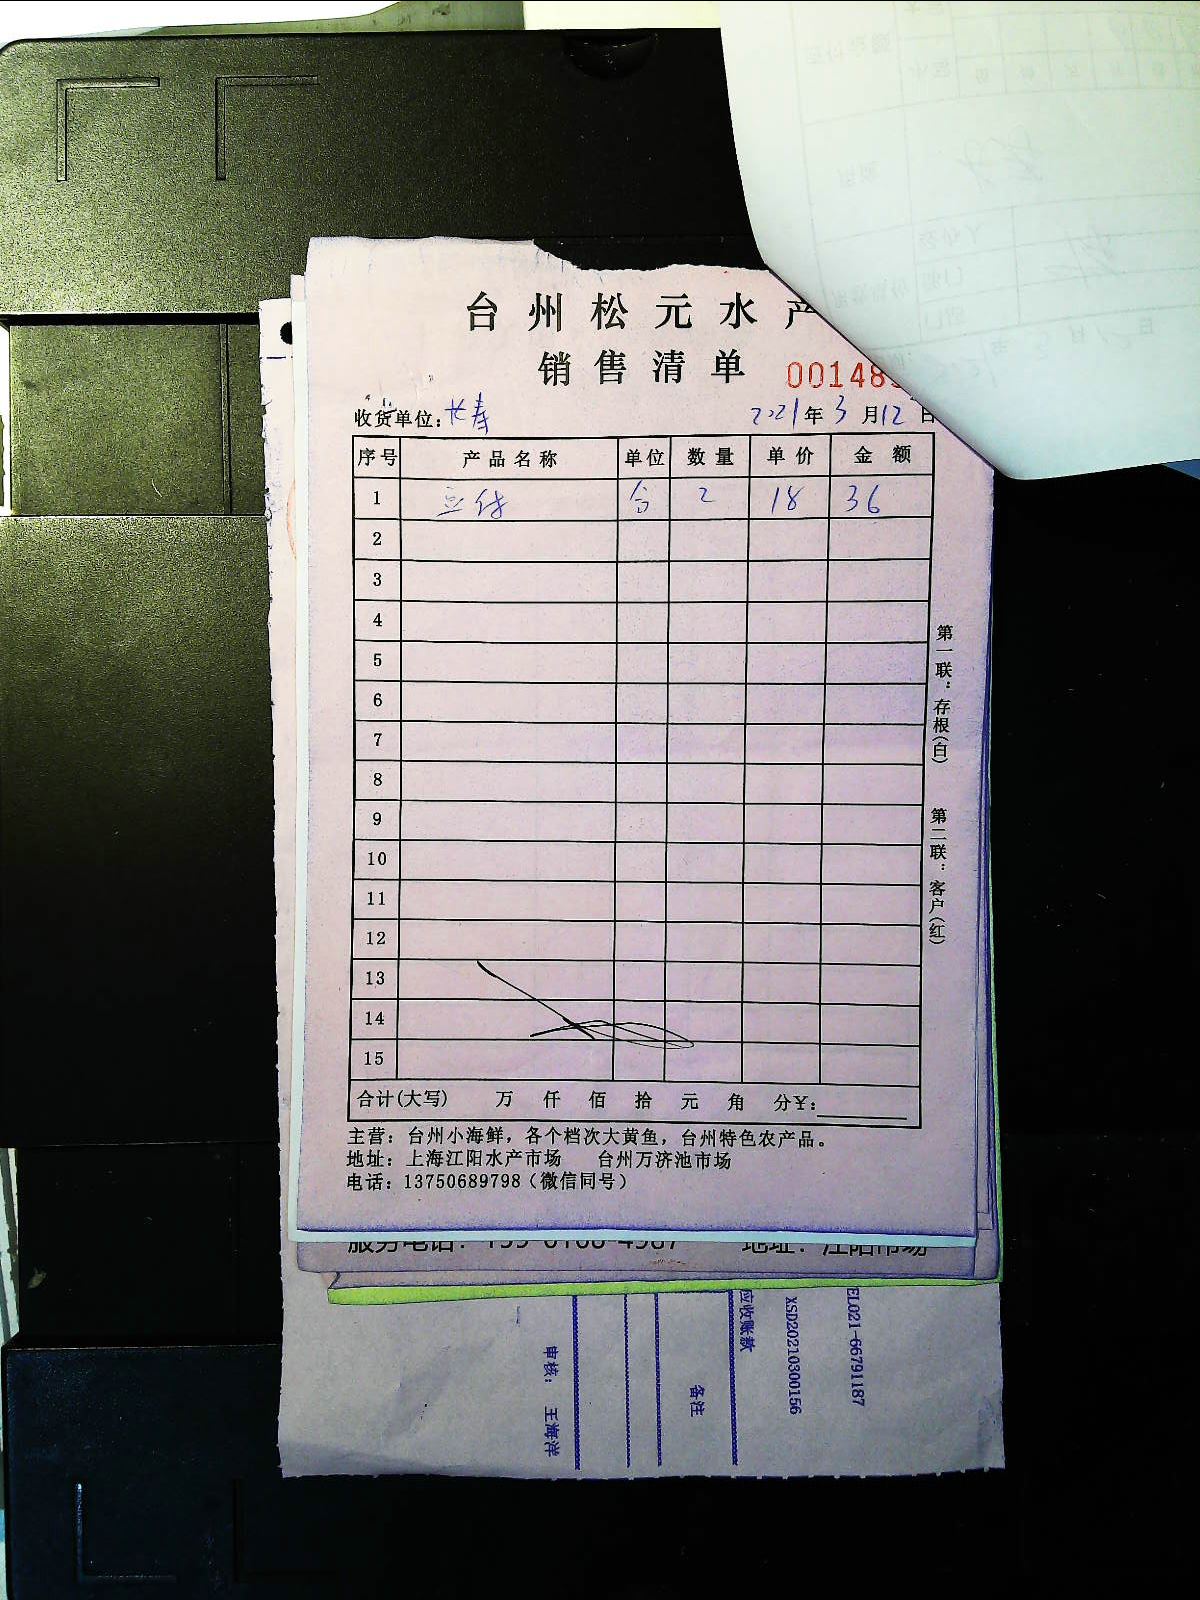 台州松元水产
销售清单 00148
收货单位：长寿 2021年3月12日
序号 产品名称 单位 数量 单价 金额
1 豆结 合 2 18 36
2
3
4
5
6
7
8
9
10
11
12
13
14
15
合计(大写) 万 仟 佰 拾 元 角 分¥：
主营：台州小海鲜，各个档次大黄鱼，台州特色农产品。
地址：上海江阳水产市场 台州万济池市场
电话：13750689798（微信同号）
第一联：存根(白)
第二联：客户(红)
服务电话： 地址：江阳市场
EL021-66791187
XSD20210300156
应收账款
备注
审核： 王海洋